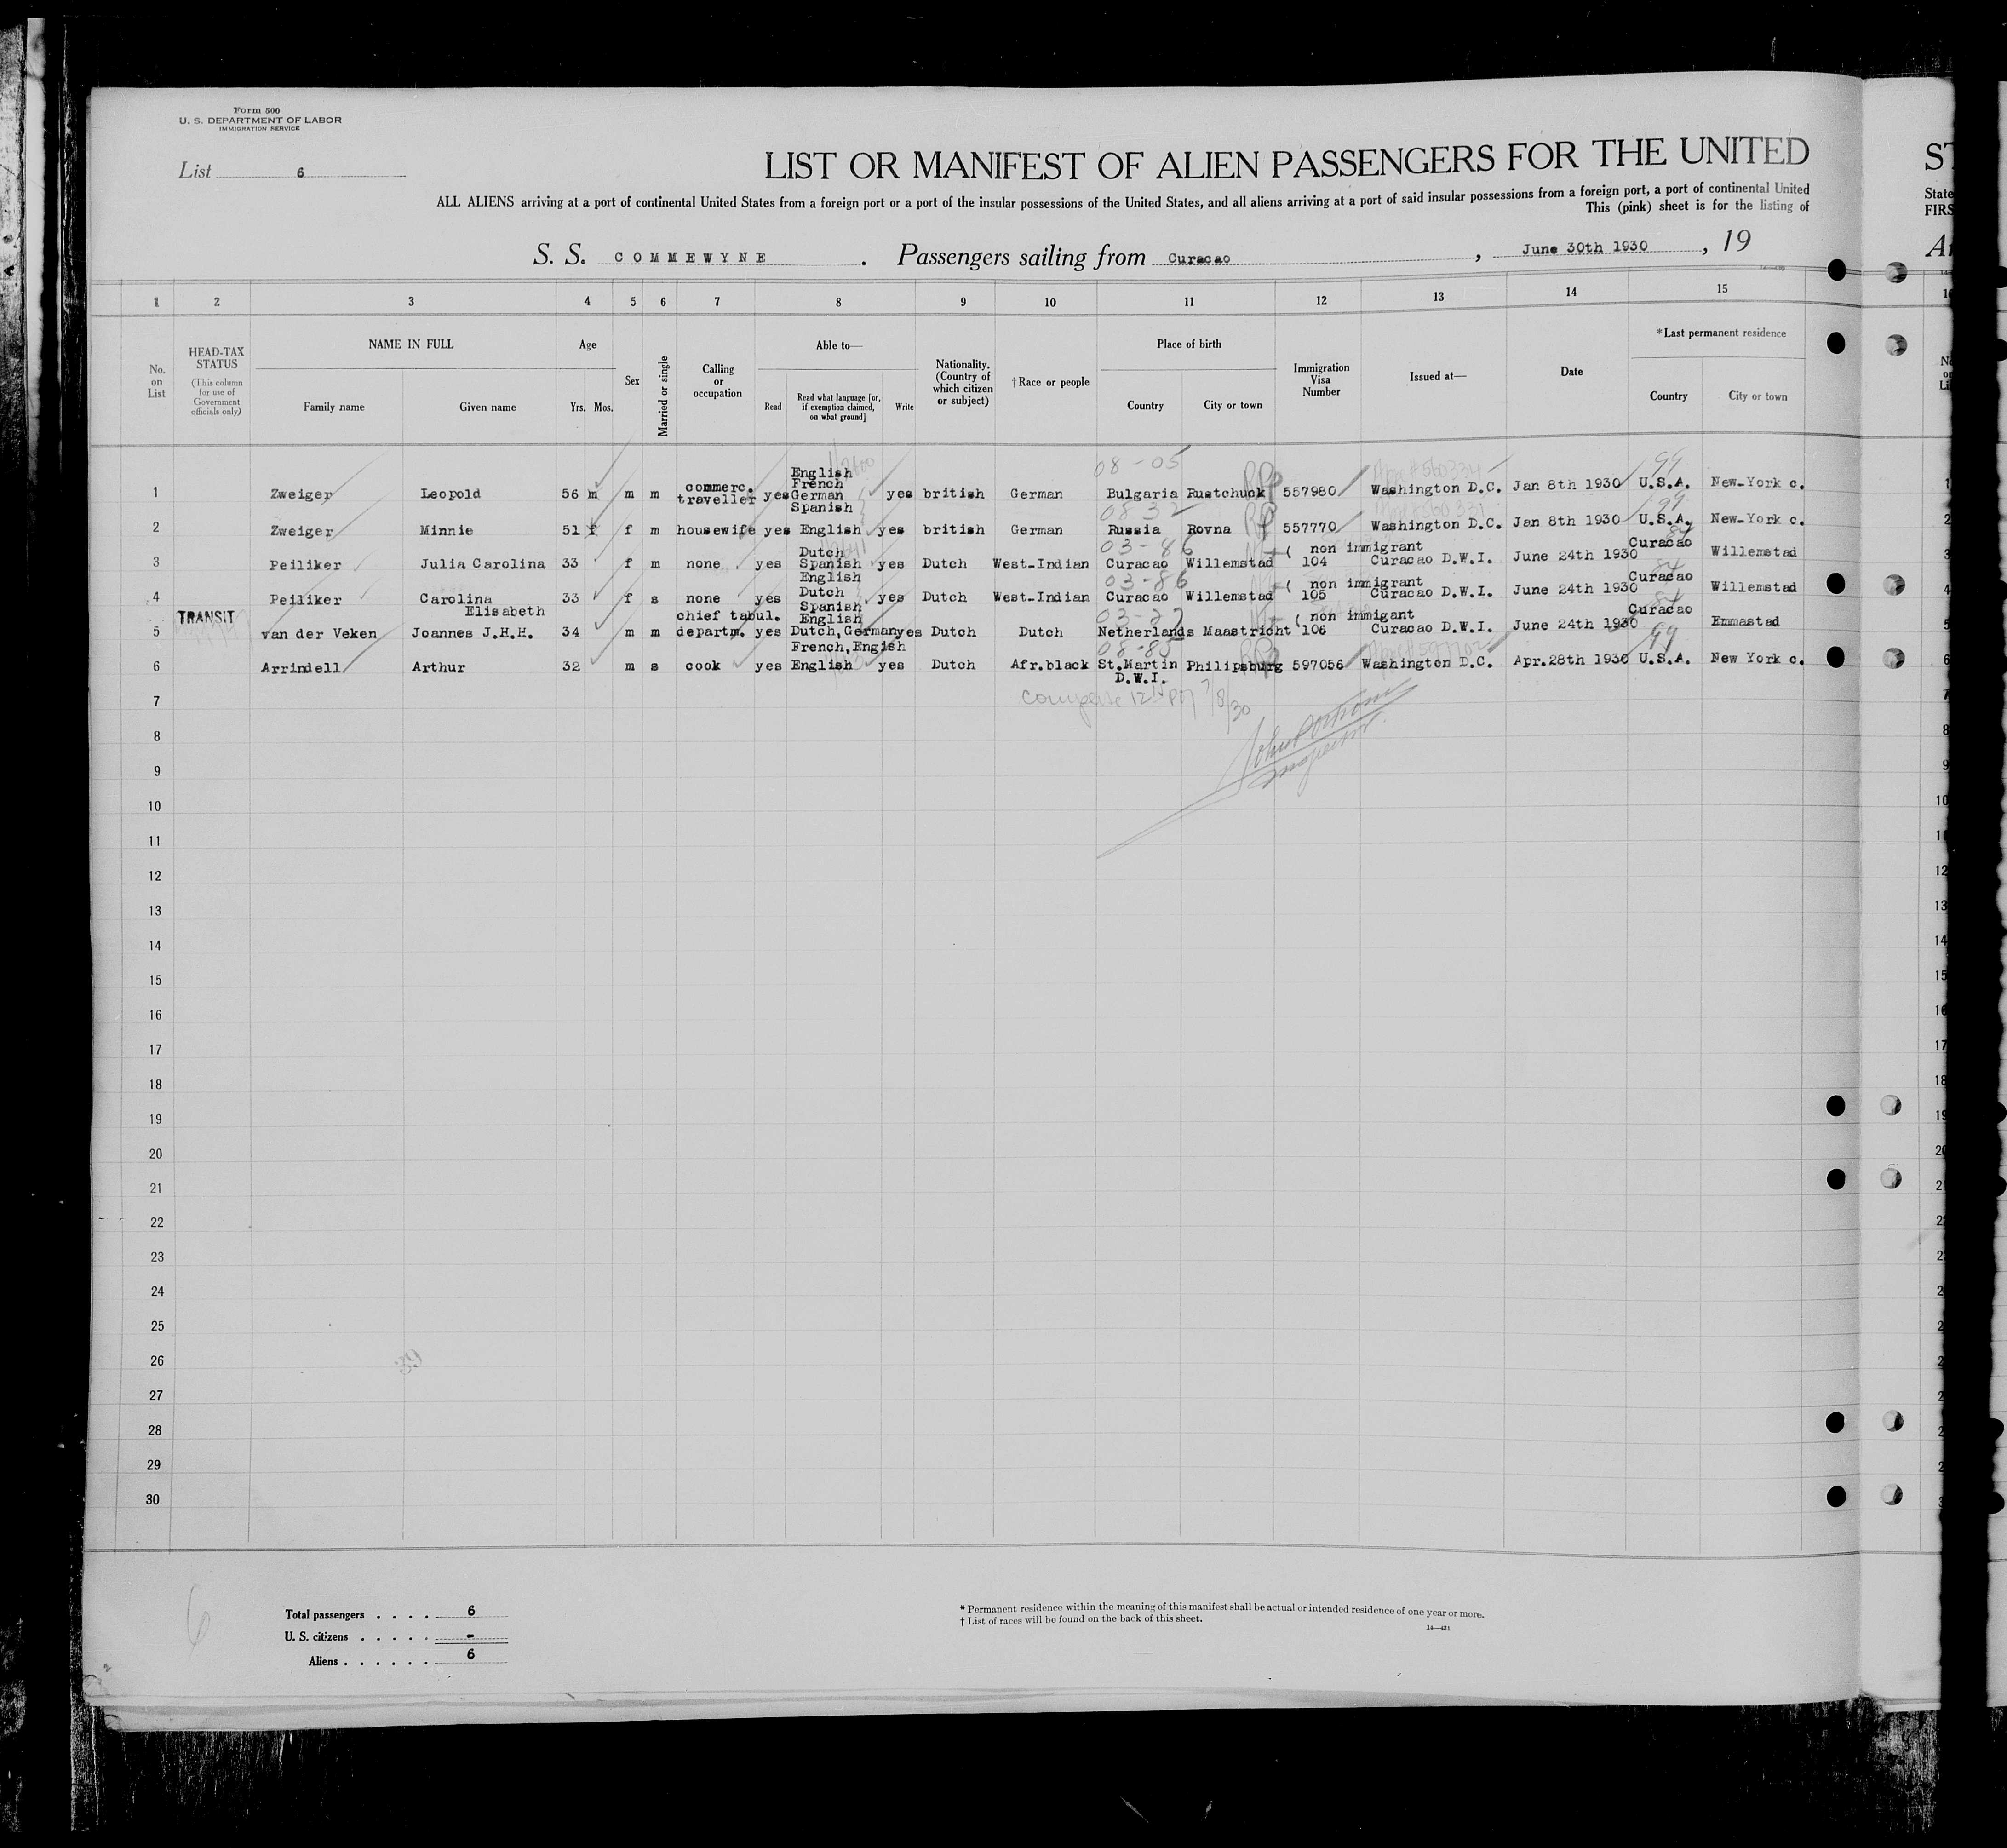 Form 500
U. S. DEPARTMENT OF LABOR
IMMIGRATION SERVICE
List 6
LIST OR MANIFEST OF ALIEN PASSENGERS FOR THE UNITED
ALL ALIENS arriving at a port of continental United States from a foreign port or a port of the insular possessions of the United States, and all aliens arriving at a port of said insular possessions from a foreign port, a port of continental United
This (pink) sheet is for the listing of
S. S. COMMEWYNE. Passengers sailing from Curacao, June 30th 1930, 19
ST
State
FIRS
1 2 3 4 5 6 7 8 9 10 11 12 13 14 15
No. on List
HEAD-TAX STATUS
(This column for use of Government officials only)
NAME IN FULL
Family name Given name
Age
Yrs. Mos.
Sex
Married or single
Calling or occupation
Able to—
Read
Read what language [or, if exemption claimed, on what ground]
Write
Nationality. (Country of which citizen or subject)
† Race or people
Place of birth
Country City or town
Immigration Visa Number
Issued at—
Date
* Last permanent residence
Country City or town
08-05 99
1 Zweiger Leopold 56 m m m commerc. traveller yes English French German Spanish yes british German Bulgaria Rustchuck 557980 Washington D.C. Jan 8th 1930 U.S.A. New-York c.
0832 99
2 Zweiger Minnie 51 f f m housewife yes English yes british German Russia Rovna 557770 Washington D.C. Jan 8th 1930 U.S.A. New-York c.
03-86 84
3 Peiliker Julia Carolina 33 f m none yes Dutch Spanish English yes Dutch West-Indian Curacao Willemstad ( non immigrant 104 Curacao D.W.I. June 24th 1930 Curacao Willemstad
03-86 84
4 Peiliker Carolina Elisabeth 33 f s none yes Dutch Spanish English yes Dutch West-Indian Curacao Willemstad ( non immigrant 105 Curacao D.W.I. June 24th 1930 Curacao Willemstad
03-27 84
TRANSIT
5 van der Veken Joannes J.H.H. 34 m m chief tabul. departm. yes Dutch,German French,Engish yes Dutch Dutch Netherlands Maastricht ( non immigant 106 Curacao D.W.I. June 24th 1930 Curacao Emmastad
08-85 99
6 Arrindell Arthur 32 m s cook yes English yes Dutch Afr.black St.Martin D.W.I. Philipsburg 597056 Washington D.C. Apr.28th 1930 U.S.A. New York c.
7 7/8/30
8
Inspector
9
10
11
12
13
14
15
16
17
18
19
20
21
22
23
24
25
26
27
28
29
30
6
Total passengers . . . . 6
U. S. citizens . . . . . -
Aliens . . . . . . 6
* Permanent residence within the meaning of this manifest shall be actual or intended residence of one year or more.
† List of races will be found on the back of this sheet.